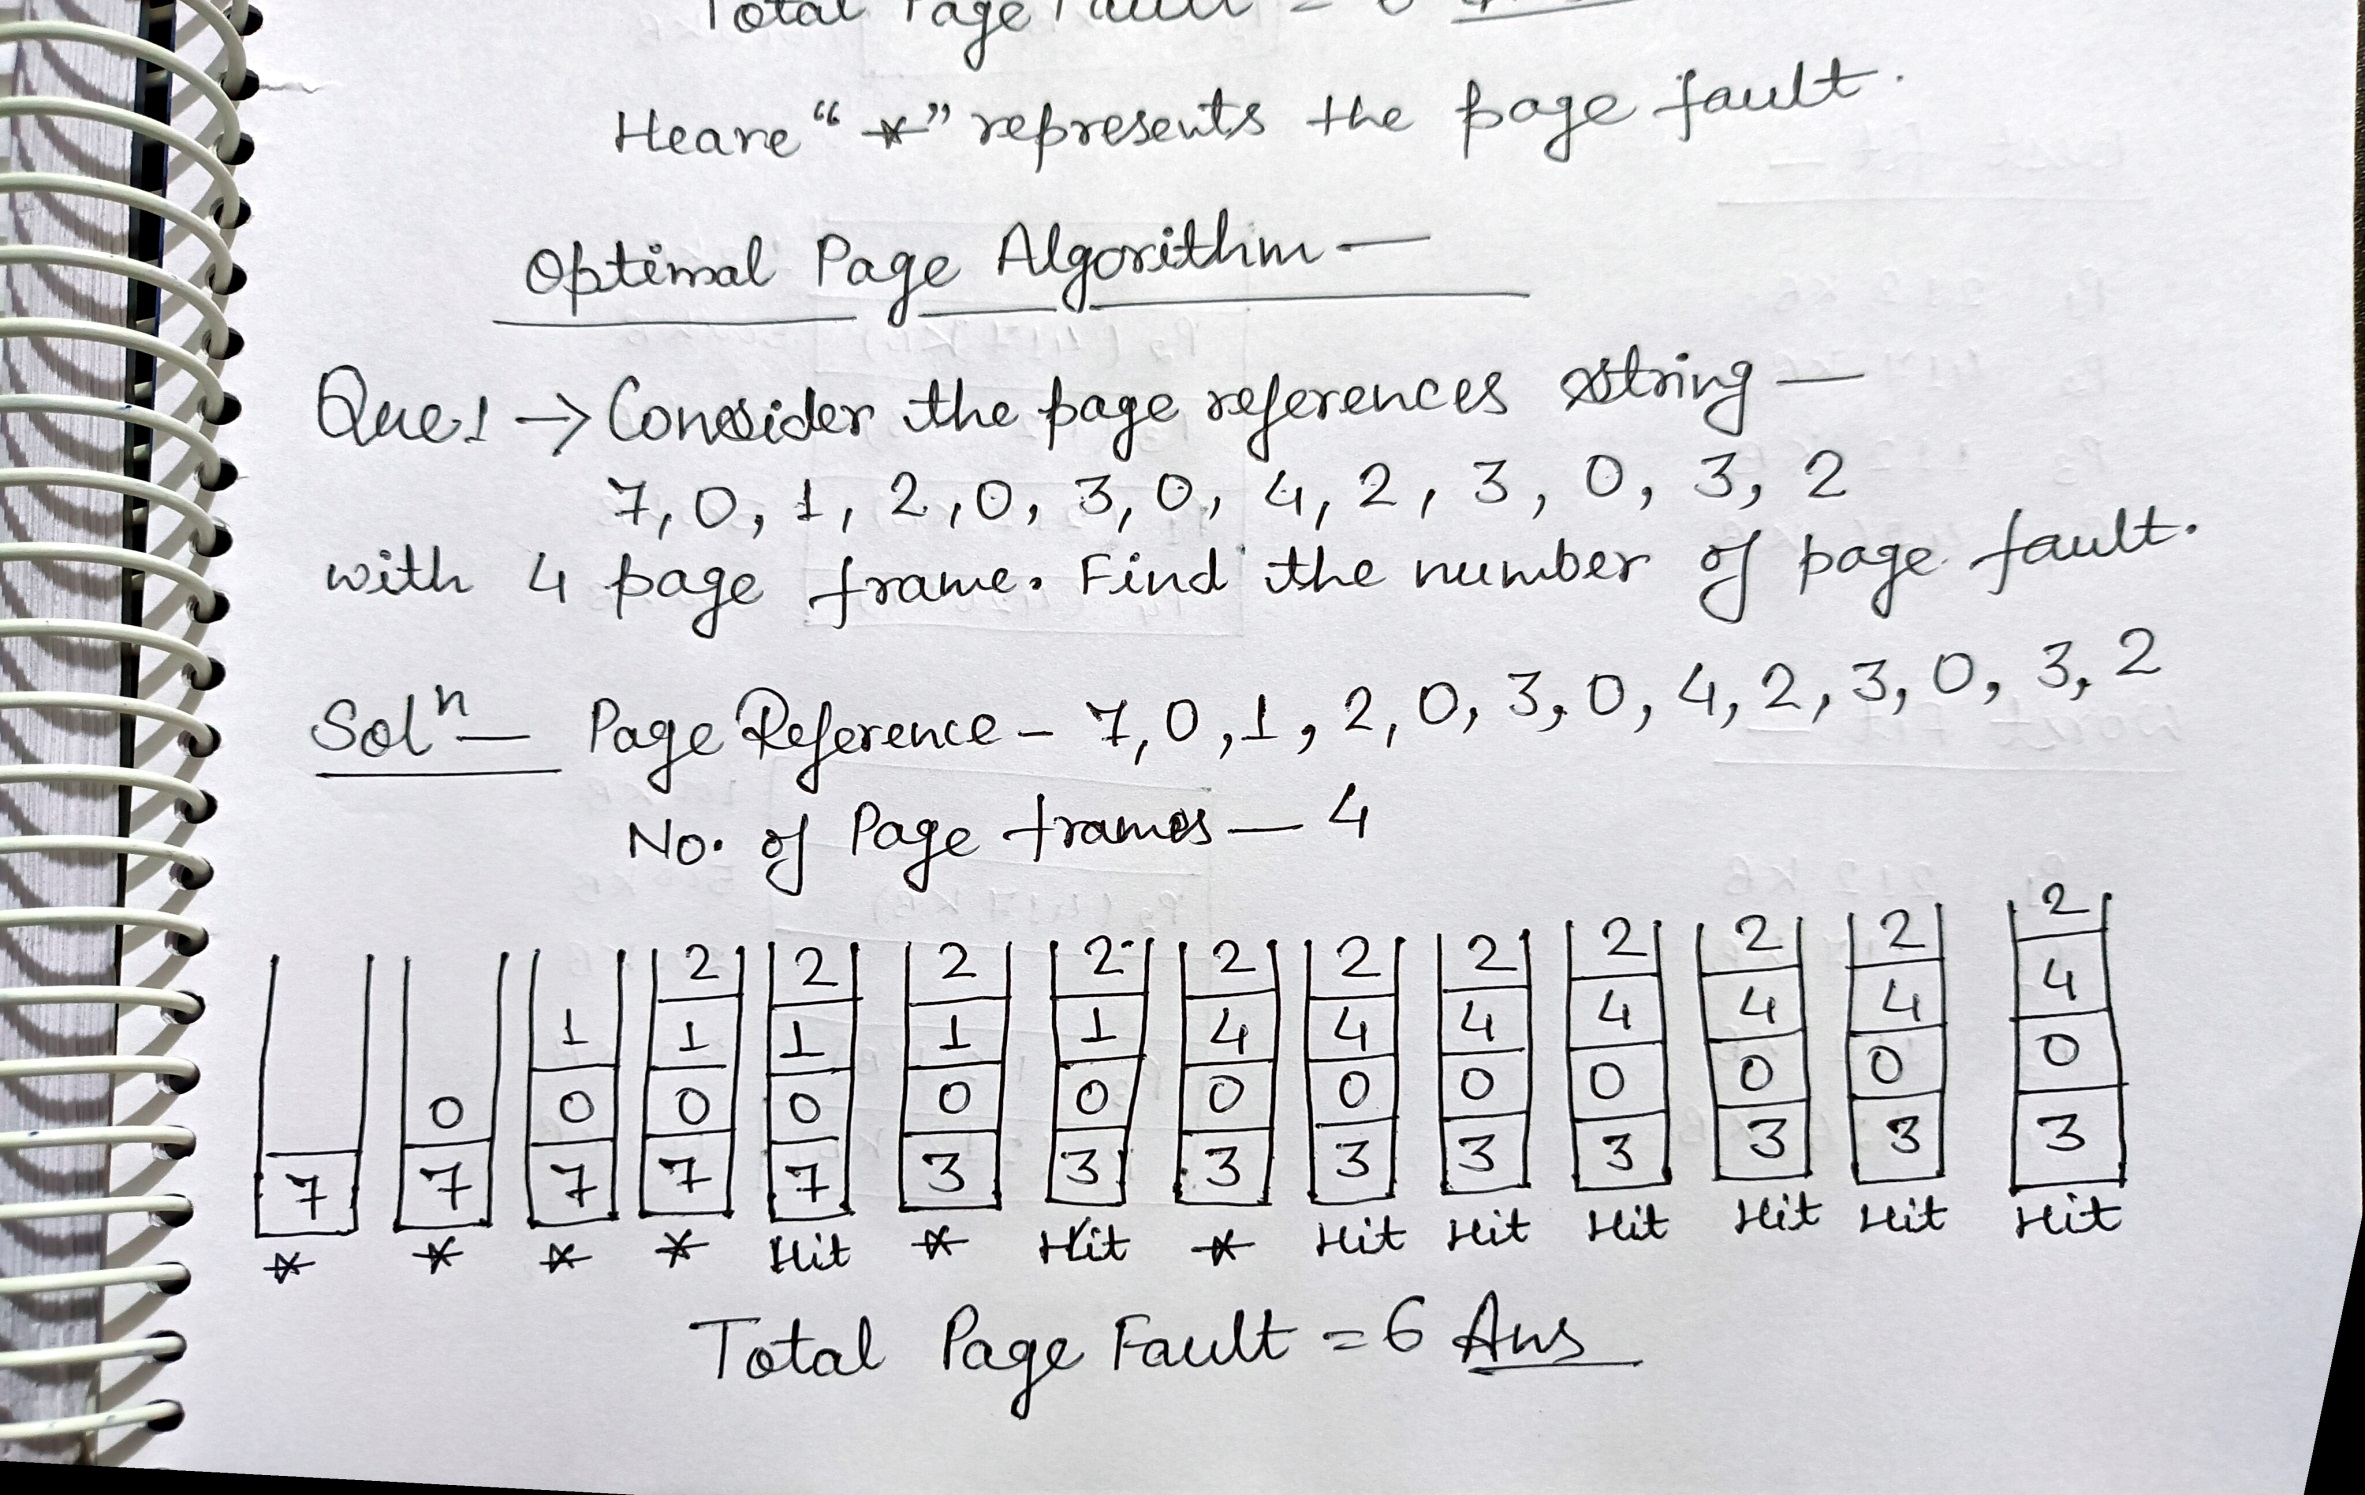 Total Page Fault = 6 Ans
Heare "*" represents the page fault.
Optimal Page Algorithm —
Que.1 → Consider the page references string —
7, 0, 1, 2, 0, 3, 0, 4, 2, 3, 0, 3, 2
with 4 page frame. Find the number of page fault.
Solⁿ — Page Reference - 7, 0, 1, 2, 0, 3, 0, 4, 2, 3, 0, 3, 2
No. of Page frames — 4
2 2 2 2 2 2 2 2 2 2 2
1 1 1 1 1 4 4 4 4 4 4 4
0 0 0 0 0 0 0 0 0 0 0 0 0
7 7 7 7 7 3 3 3 3 3 3 3 3 3
* * * * Hit * Hit * Hit Hit Hit Hit Hit Hit
Total Page Fault = 6 Ans